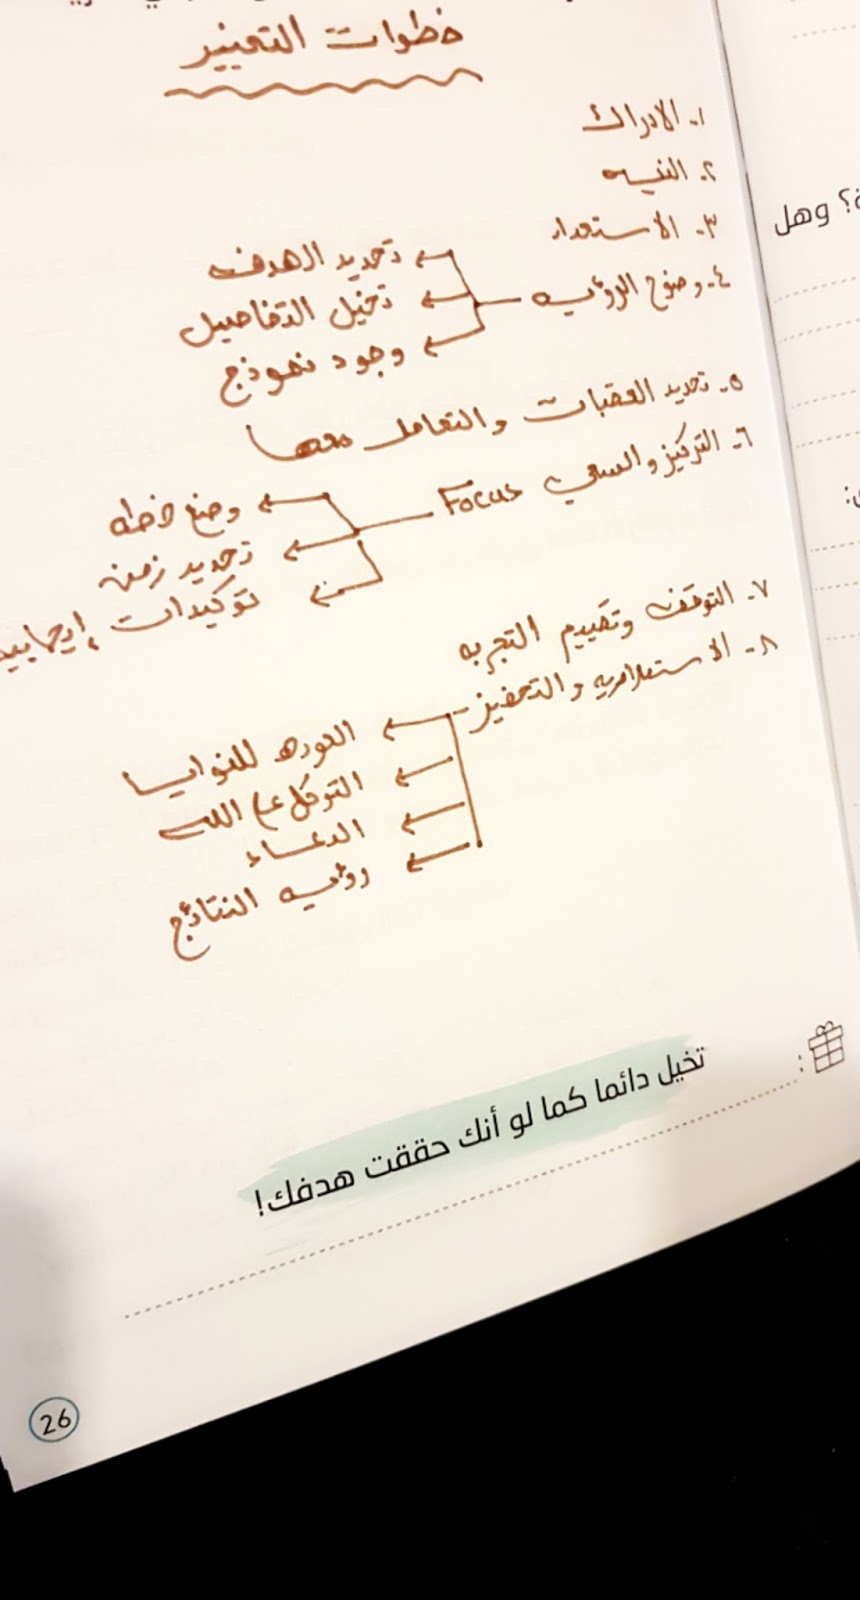 خطوات التغيير
١- الادراك
٢- النيه
٣- الاستعداد
٤- وضوح الرؤيه
تحديد الهدف
تخيل التفاصيل
وجود نموذج
٥- تحديد العقبات والتعامل معها
٦- التركيز والسعي Focus
وضع خطه
تحديد زمن
توكيدات إيجابيه
٧- التوقف وتقييم التجربه
٨- الاستمراريه والتحفيز
العوده للنوايا
التوكل على الله
الدعاء
رؤيه النتائج
تخيل دائما كما لو أنك حققت هدفك!
26
ة؟ وهل